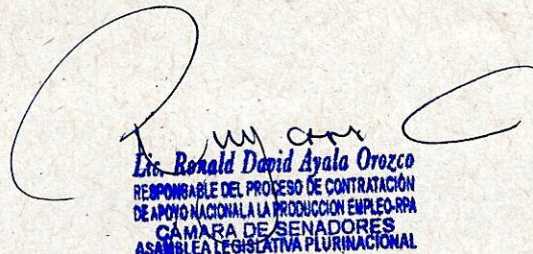 Lic. Ronald David Ayala Orozco
RESPONSABLE DEL PROCESO DE CONTRATACIÓN
DE APOYO NACIONAL A LA PRODUCCION EMPLEO-RPA
CÁMARA DE SENADORES
ASAMBLEA LEGISLATIVA PLURINACIONAL